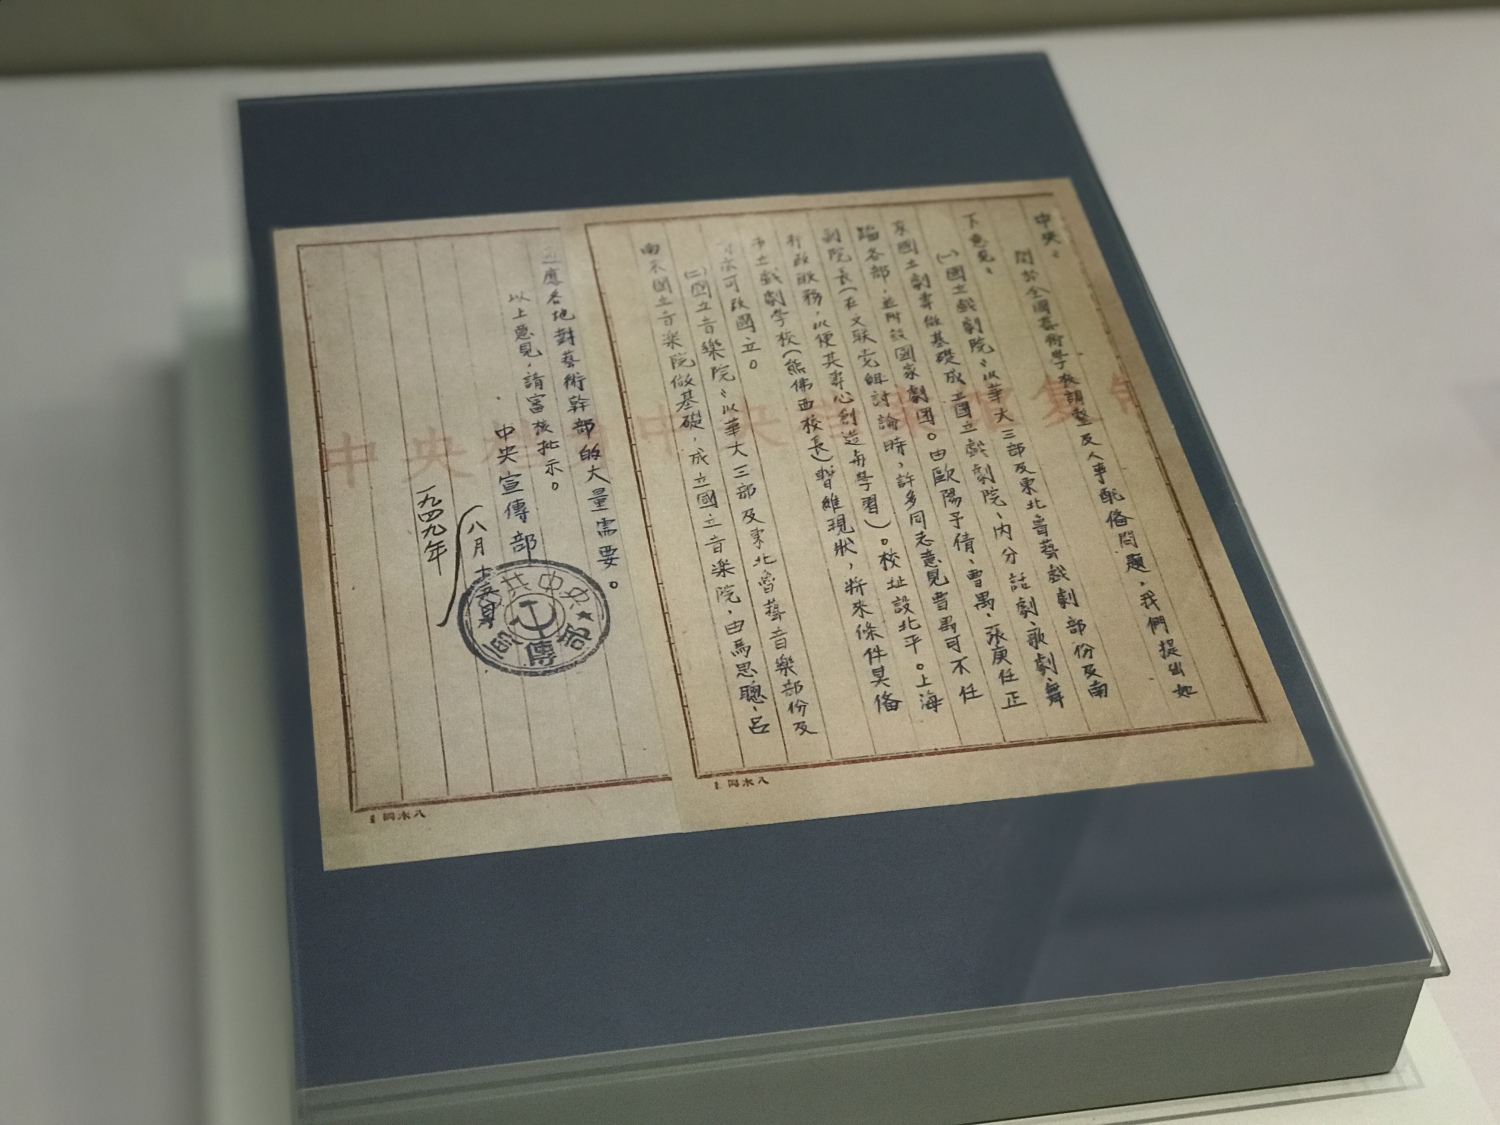 中央：
關於全國藝術學校調整及人事配備問題，我們提出如
下意見：
㈠國立戲劇院：以華大三部及東北魯藝戲劇部份及南
京國立劇專做基礎成立國立戲劇院、內分話劇、歌劇、舞
蹈各部，並附設國家劇团。由歐陽予倩、曹禺、張庚任正
副院長（在文联党組討論時，許多同志意見曹禺可不任
行政職務，以便其專心創造和學習）。校址設北平。上海
市立戲劇学校（熊佛西校長）暫維現狀，將來條件具備
可改國立。
㈡國立音樂院：以華大三部及東北魯藝音樂部份及
南京國立音樂院做基礎，成立國立音樂院，由馬思聰、呂
應各地對藝術幹部的大量需要。
以上意見，請審核批示。
中央宣傳部
八月十
一九四九年
中共中央 宣傳部
中央档案馆复制
八水問
八水問